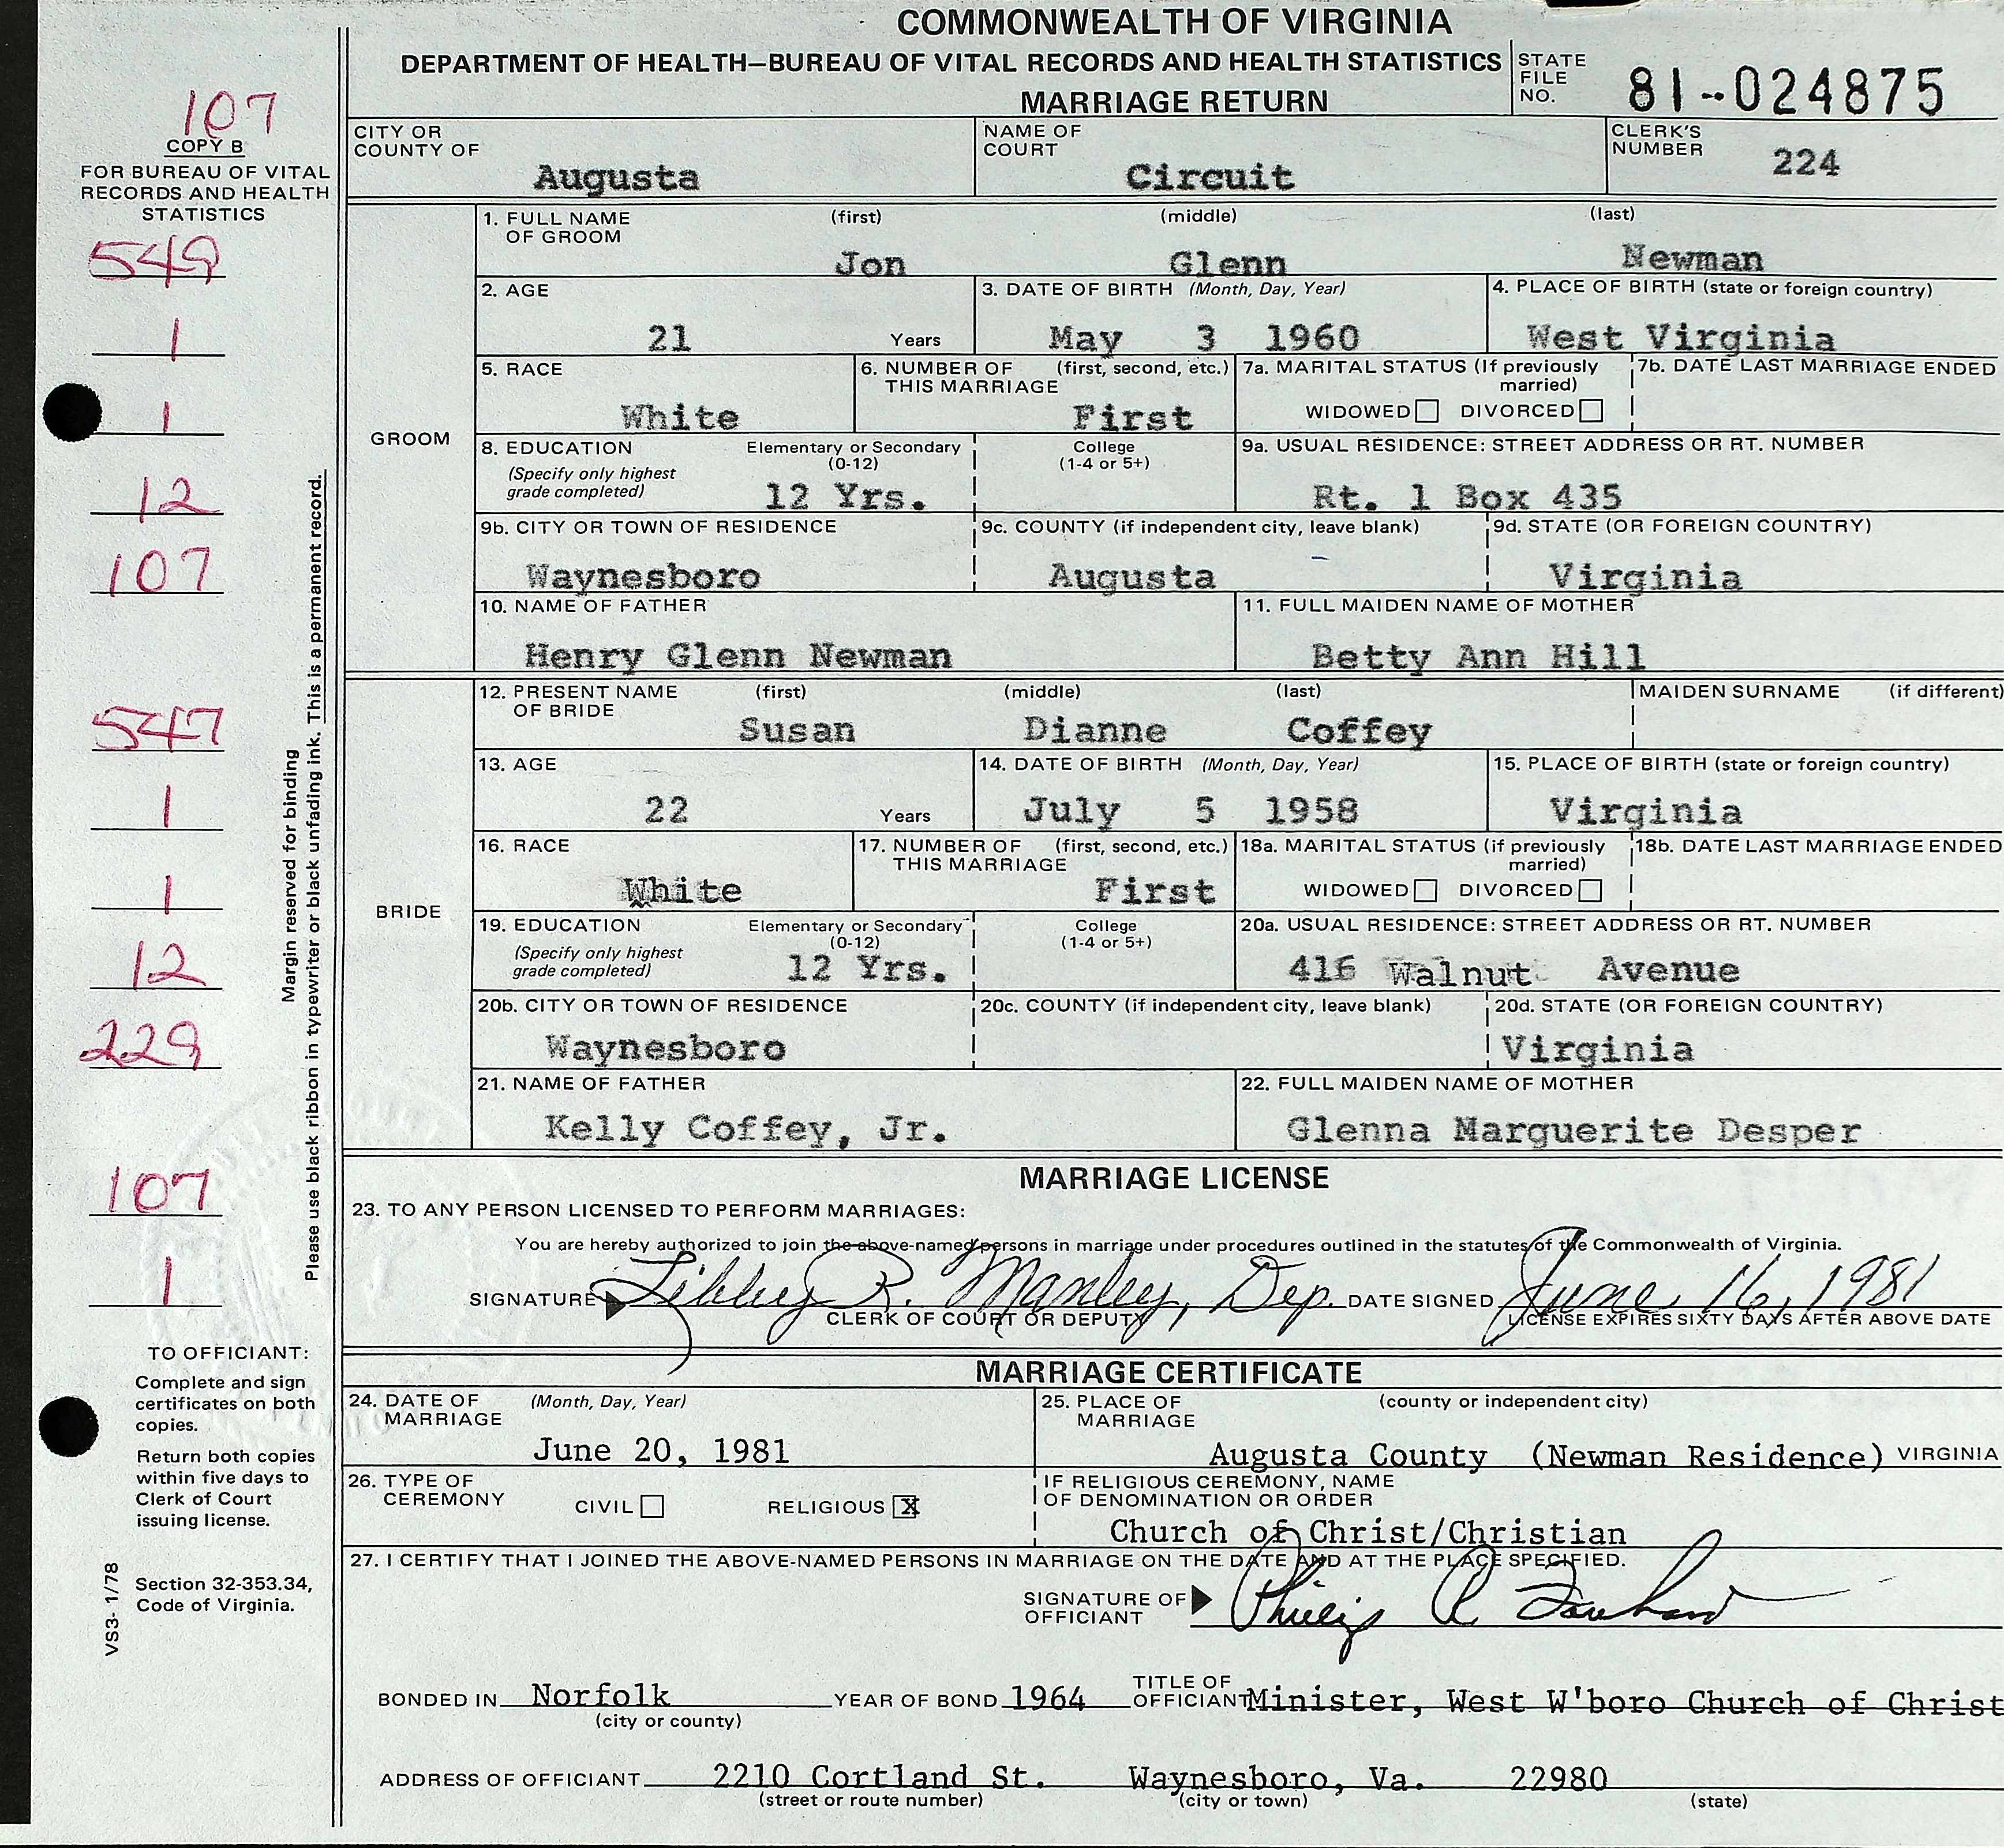 COMMONWEALTH OF VIRGINIA
DEPARTMENT OF HEALTH—BUREAU OF VITAL RECORDS AND HEALTH STATISTICS
MARRIAGE RETURN
STATE FILE NO. 81-024875
107
COPY B
FOR BUREAU OF VITAL
RECORDS AND HEALTH
STATISTICS
549
1
1
12
107
547
1
1
12
229
107
1
Margin reserved for binding
Please use black ribbon in typewriter or black unfading ink. This is a permanent record.
TO OFFICIANT:
Complete and sign
certificates on both
copies.
Return both copies
within five days to
Clerk of Court
issuing license.
Section 32-353.34,
Code of Virginia.
VS3- 1/78
CITY OR COUNTY OF Augusta
NAME OF COURT Circuit
CLERK'S NUMBER 224
GROOM
1. FULL NAME OF GROOM (first) (middle) (last)
Jon Glenn Newman
2. AGE 21 Years
3. DATE OF BIRTH (Month, Day, Year) May 3 1960
4. PLACE OF BIRTH (state or foreign country) West Virginia
5. RACE White
6. NUMBER OF THIS MARRIAGE (first, second, etc.) First
7a. MARITAL STATUS (If previously married) WIDOWED DIVORCED
7b. DATE LAST MARRIAGE ENDED
8. EDUCATION (Specify only highest grade completed) Elementary or Secondary (0-12) 12 Yrs. College (1-4 or 5+)
9a. USUAL RESIDENCE: STREET ADDRESS OR RT. NUMBER Rt. 1 Box 435
9b. CITY OR TOWN OF RESIDENCE Waynesboro
9c. COUNTY (if independent city, leave blank) Augusta
9d. STATE (OR FOREIGN COUNTRY) Virginia
10. NAME OF FATHER Henry Glenn Newman
11. FULL MAIDEN NAME OF MOTHER Betty Ann Hill
BRIDE
12. PRESENT NAME OF BRIDE (first) (middle) (last) MAIDEN SURNAME (if different)
Susan Dianne Coffey
13. AGE 22 Years
14. DATE OF BIRTH (Month, Day, Year) July 5 1958
15. PLACE OF BIRTH (state or foreign country) Virginia
16. RACE White
17. NUMBER OF THIS MARRIAGE (first, second, etc.) First
18a. MARITAL STATUS (if previously married) WIDOWED DIVORCED
18b. DATE LAST MARRIAGE ENDED
19. EDUCATION (Specify only highest grade completed) Elementary or Secondary (0-12) 12 Yrs. College (1-4 or 5+)
20a. USUAL RESIDENCE: STREET ADDRESS OR RT. NUMBER 416 Walnut Avenue
20b. CITY OR TOWN OF RESIDENCE Waynesboro
20c. COUNTY (if independent city, leave blank)
20d. STATE (OR FOREIGN COUNTRY) Virginia
21. NAME OF FATHER Kelly Coffey, Jr.
22. FULL MAIDEN NAME OF MOTHER Glenna Marguerite Desper
MARRIAGE LICENSE
23. TO ANY PERSON LICENSED TO PERFORM MARRIAGES:
You are hereby authorized to join the above-named persons in marriage under procedures outlined in the statutes of the Commonwealth of Virginia.
SIGNATURE Libby R. Manley, Dep. DATE SIGNED June 16, 1981
CLERK OF COURT OR DEPUTY LICENSE EXPIRES SIXTY DAYS AFTER ABOVE DATE
MARRIAGE CERTIFICATE
24. DATE OF MARRIAGE (Month, Day, Year) June 20, 1981
25. PLACE OF MARRIAGE (county or independent city) Augusta County (Newman Residence) VIRGINIA
26. TYPE OF CEREMONY CIVIL RELIGIOUS X
IF RELIGIOUS CEREMONY, NAME OF DENOMINATION OR ORDER
Church of Christ/Christian
27. I CERTIFY THAT I JOINED THE ABOVE-NAMED PERSONS IN MARRIAGE ON THE DATE AND AT THE PLACE SPECIFIED.
SIGNATURE OF OFFICIANT
BONDED IN Norfolk YEAR OF BOND 1964 TITLE OF OFFICIANT Minister, West W'boro Church of Christ
(city or county)
ADDRESS OF OFFICIANT 2210 Cortland St. Waynesboro, Va. 22980
(street or route number) (city or town) (state)